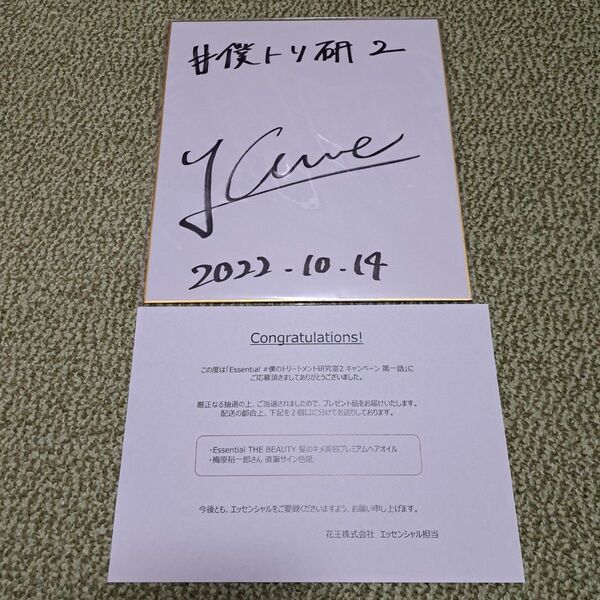 #僕トリ研 2
Y Ume
2022.10.14
Congratulations!
この度は「Essential #僕のトリートメント研究室2 キャンペーン 第一話」に
ご応募頂きましてありがとうございました。
厳正なる抽選の上、ご当選されましたので、プレゼント品をお届けいたします。
配送の都合上、下記を2個口に分けてお送りしております。
・Essential THE BEAUTY 髪のキメ美容プレミアムヘアオイル
・梅原裕一郎さん 直筆サイン色紙
今後とも、エッセンシャルをご愛顧くださいますよう、お願い申し上げます。
花王株式会社 エッセンシャル担当